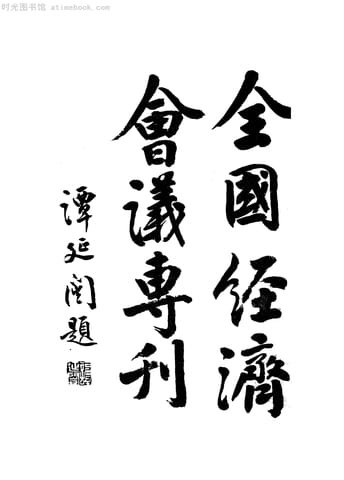 时光图书馆 atimebook.com
全國经濟
會議專刊
譚延闓題